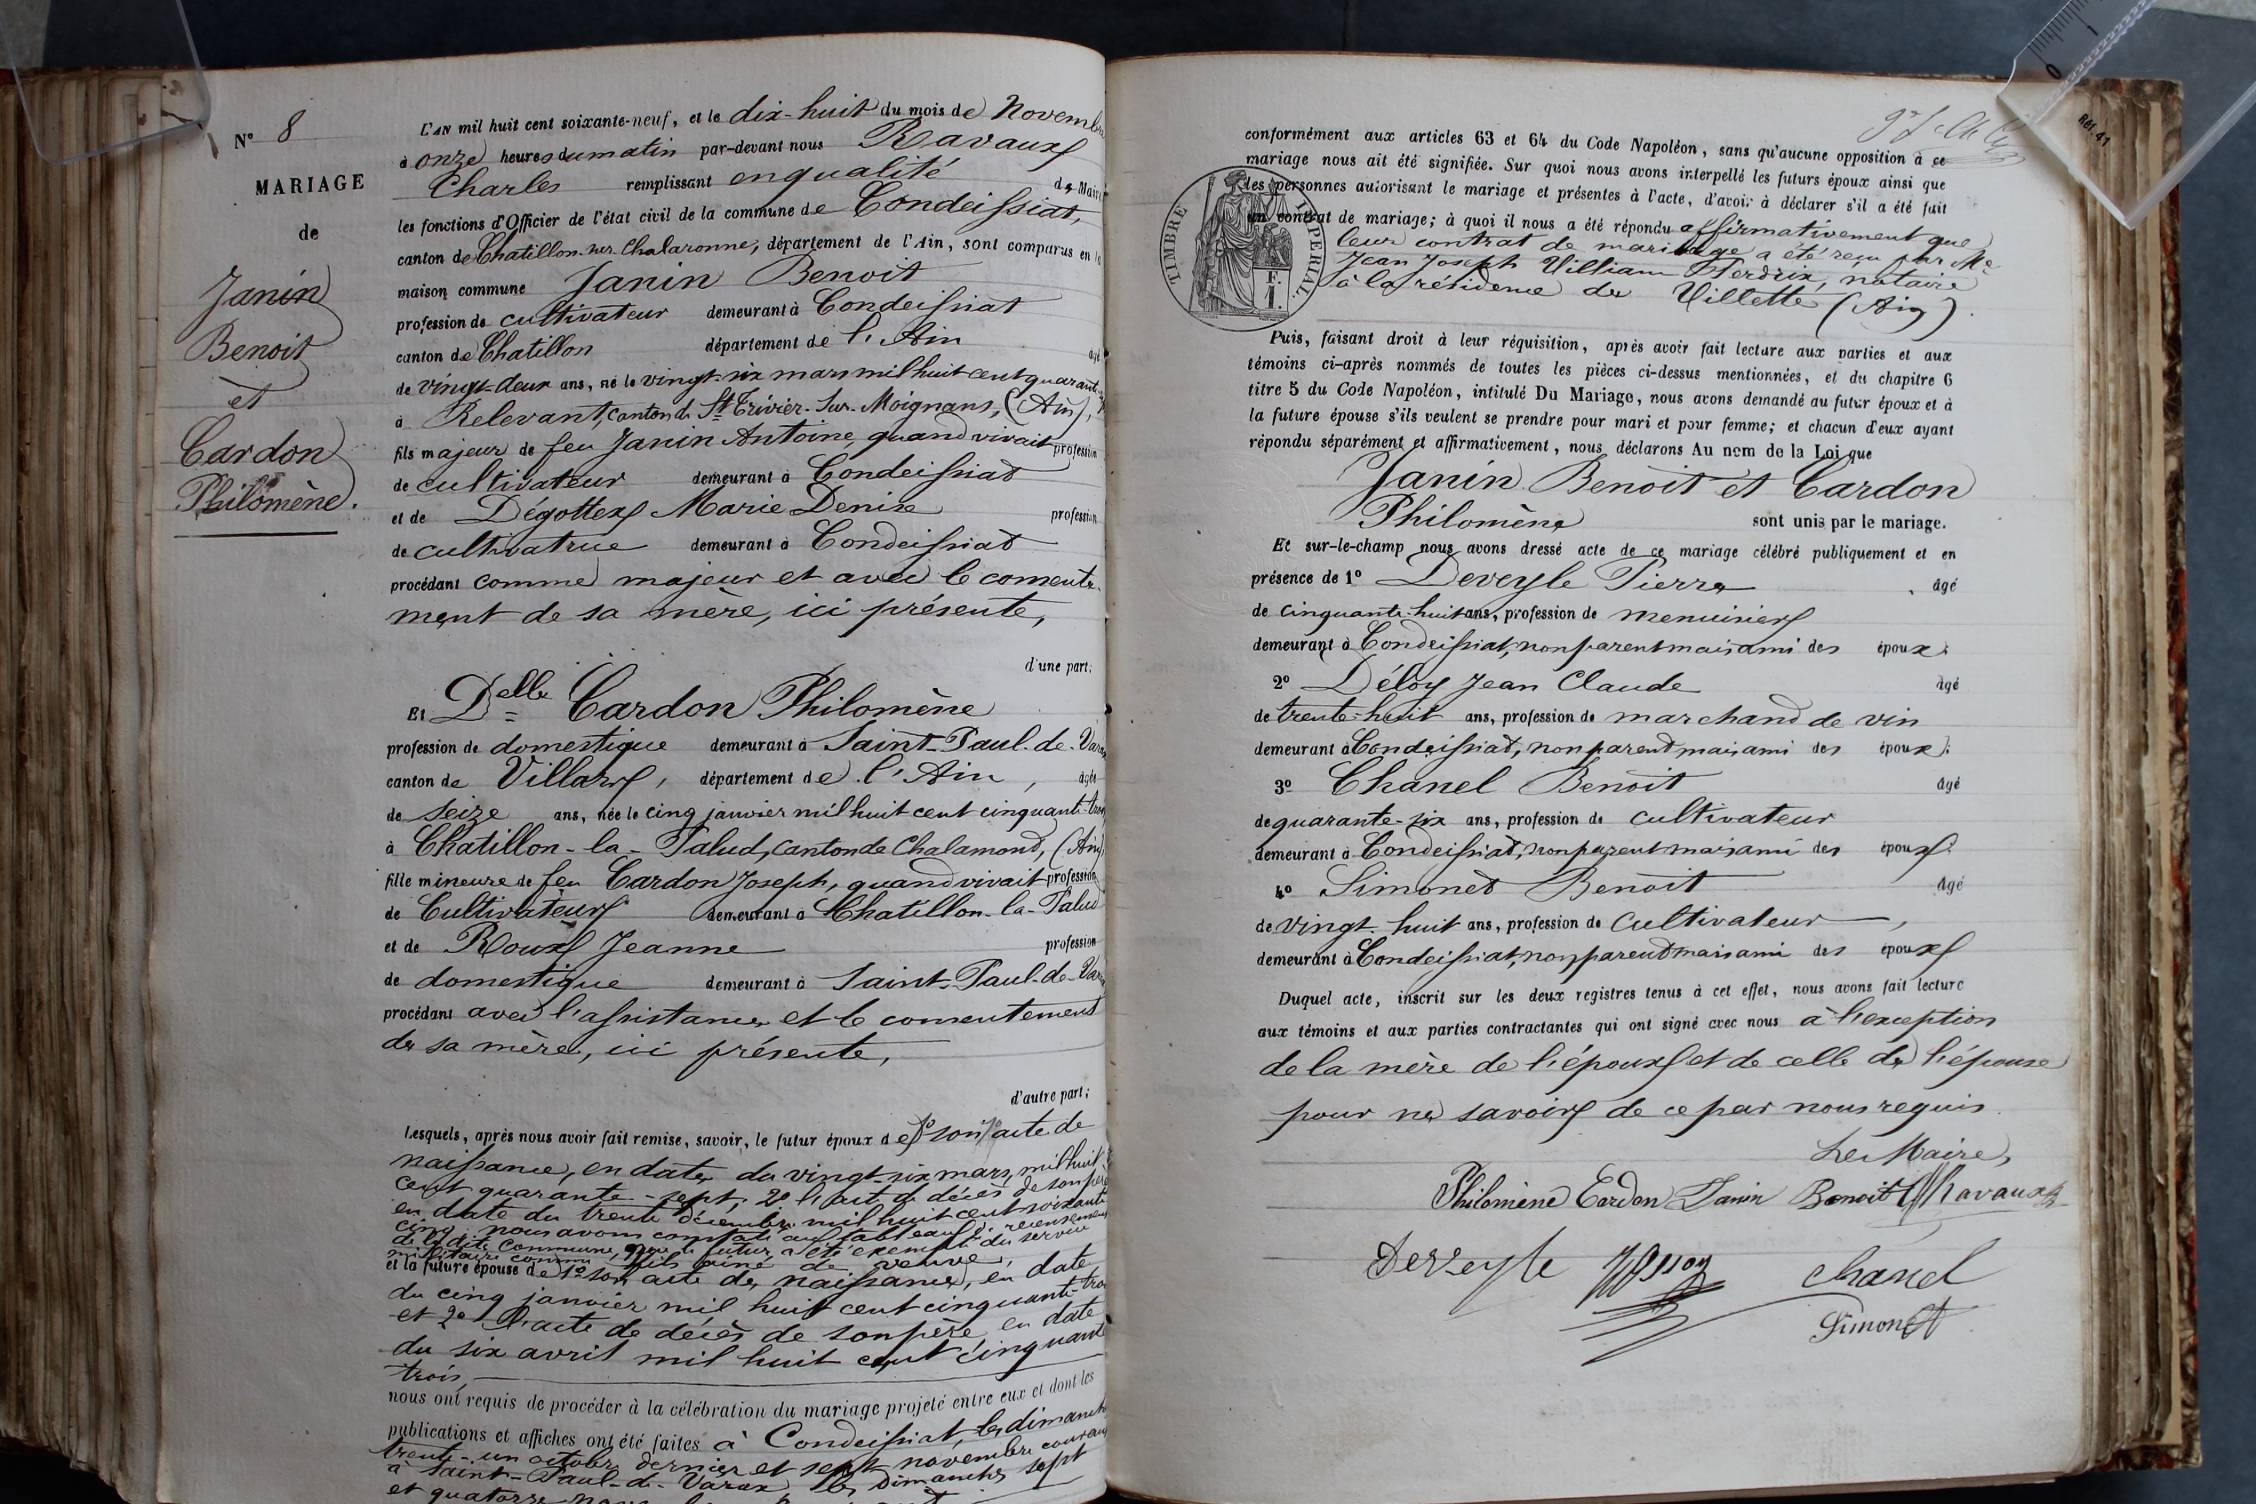 N° 8
MARIAGE
de
Janin
Benoit
et
Cardon
Philomène.
L'AN mil huit cent soixante-neuf, et le dix-huit du mois de Novembre
à onze heures du matin par-devant nous Ravaux
Charles remplissant en qualité de Maire
les fonctions d'Officier de l'état civil de la commune de Condeissiat,
canton de Chatillon-sur-Chalaronne, département de l'Ain, sont comparus en la
maison commune Janin Benoit
profession de cultivateur demeurant à Condeissiat
canton de Chatillon département de l'Ain âgé
de vingt-deux ans, né le vingt-six mars mil huit cent quarante
à Relevant, canton de St Trivier-Sur-Moignans, (Ain),
fils majeur de feu Janin Antoine, quand vivait profession
de cultivateur demeurant à Condeissiat
et de Dégottex Marie Denise profession
de cultivatrice demeurant à Condeissiat
procédant comme majeur et avec le consente-
ment de sa mère, ici présente,
d'une part;
Et Delle Cardon Philomène
profession de domestique demeurant à Saint-Paul-de-Varax
canton de Villars, département de l'Ain, âgée
de seize ans, née le cinq janvier mil huit cent cinquante-trois
à Chatillon-la-Palud, canton de Chalamond, (Ain)
fille mineure de feu Cardon Joseph, quand vivait profession
de Cultivateur demeurant à Chatillon-la-Palud
et de Roux Jeanne profession
de domestique demeurant à Saint-Paul-de-Varax
procédant avec l'assistance et le consentement
de sa mère, ici présente,
d'autre part;
Lesquels, après nous avoir fait remise, savoir, le futur époux de 1° son acte de
naissance, en date du vingt-six mars, mil huit
cent quarante-sept, 2° l'acte de décès de son père
en date du trente décembre mil huit cent soixante
cinq, nous avons constaté au tableau de recensement
de ladite commune, que le futur a été exempté du service
militaire comme fils aîné de veuve,
et la future épouse de 1° son acte de naissance, en date
du cinq janvier mil huit cent cinquante-trois
et 2° l'acte de décès de son père en date
du six avril mil huit cent cinquante
trois,
nous ont requis de procéder à la célébration du mariage projeté entre eux et dont les
publications et affiches ont été faites à Condeissiat, les dimanches
trente-un octobre dernier et sept novembre courant
à Saint-Paul-de-Varax les dimanches sept
et quatorze
conformément aux articles 63 et 64 du Code Napoléon, sans qu'aucune opposition à ce
mariage nous ait été signifiée. Sur quoi nous avons interpellé les futurs époux ainsi que
les personnes autorisant le mariage et présentes à l'acte, d'avoir à déclarer s'il a été fait
un contrat de mariage; à quoi il nous a été répondu affirmativement que
leur contrat de mariage a été reçu par Me
Jean Joseph William Perdrix, notaire
à la résidence de Villette (Ain).
TIMBRE IMPERIAL.
F.
1.
Puis, faisant droit à leur réquisition, après avoir fait lecture aux parties et aux
témoins ci-après nommés de toutes les pièces ci-dessus mentionnées, et du chapitre 6
titre 5 du Code Napoléon, intitulé Du Mariage, nous avons demandé au futur époux et à
la future épouse s'ils veulent se prendre pour mari et pour femme; et chacun d'eux ayant
répondu séparément et affirmativement, nous déclarons Au nom de la Loi que
Janin Benoit et Cardon
Philomène sont unis par le mariage.
Et sur-le-champ nous avons dressé acte de ce mariage célébré publiquement et en
présence de 1° Deveyle Pierre âgé
de cinquante-huit ans, profession de menuisier
demeurant à Condeissiat, non parent mais ami des époux.
2° Déloy Jean Claude âgé
de trente-huit ans, profession de marchand de vin
demeurant à Condeissiat, non parent mais ami des époux.
3° Chanel Benoit âgé
de quarante-six ans, profession de cultivateur
demeurant à Condeissiat, non parent mais ami des époux.
4° Simonet Benoit âgé
de vingt-huit ans, profession de cultivateur,
demeurant à Condeissiat, non parent mais ami des époux
Duquel acte, inscrit sur les deux registres tenus à cet effet, nous avons fait lecture
aux témoins et aux parties contractantes qui ont signé avec nous à l'exception
de la mère de l'époux et de celle de l'épouse
pour ne savoir de ce par nous requis.
Le Maire,
Philomène Cardon Janin Benoit Ravaux
Deveyle
Chanel
Simonet
Réf. 41
0
1